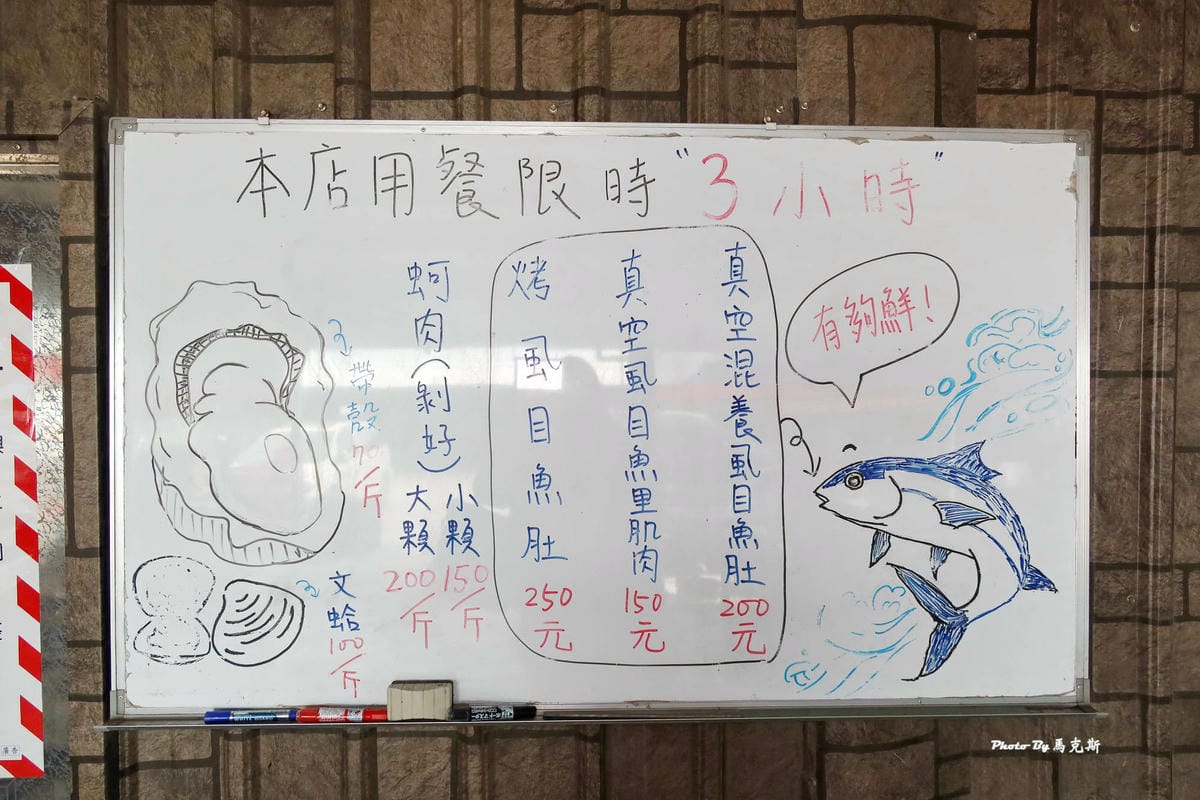 本店用餐限時"3小時"
有夠鮮!
真空混養虱目魚肚200元
真空虱目魚里肌肉150元
烤虱目魚肚250元
蚵肉(剝好)
小顆150/斤
大顆200/斤
帶殼70/斤
文蛤100/斤
廣告
Photo By 馬克斯